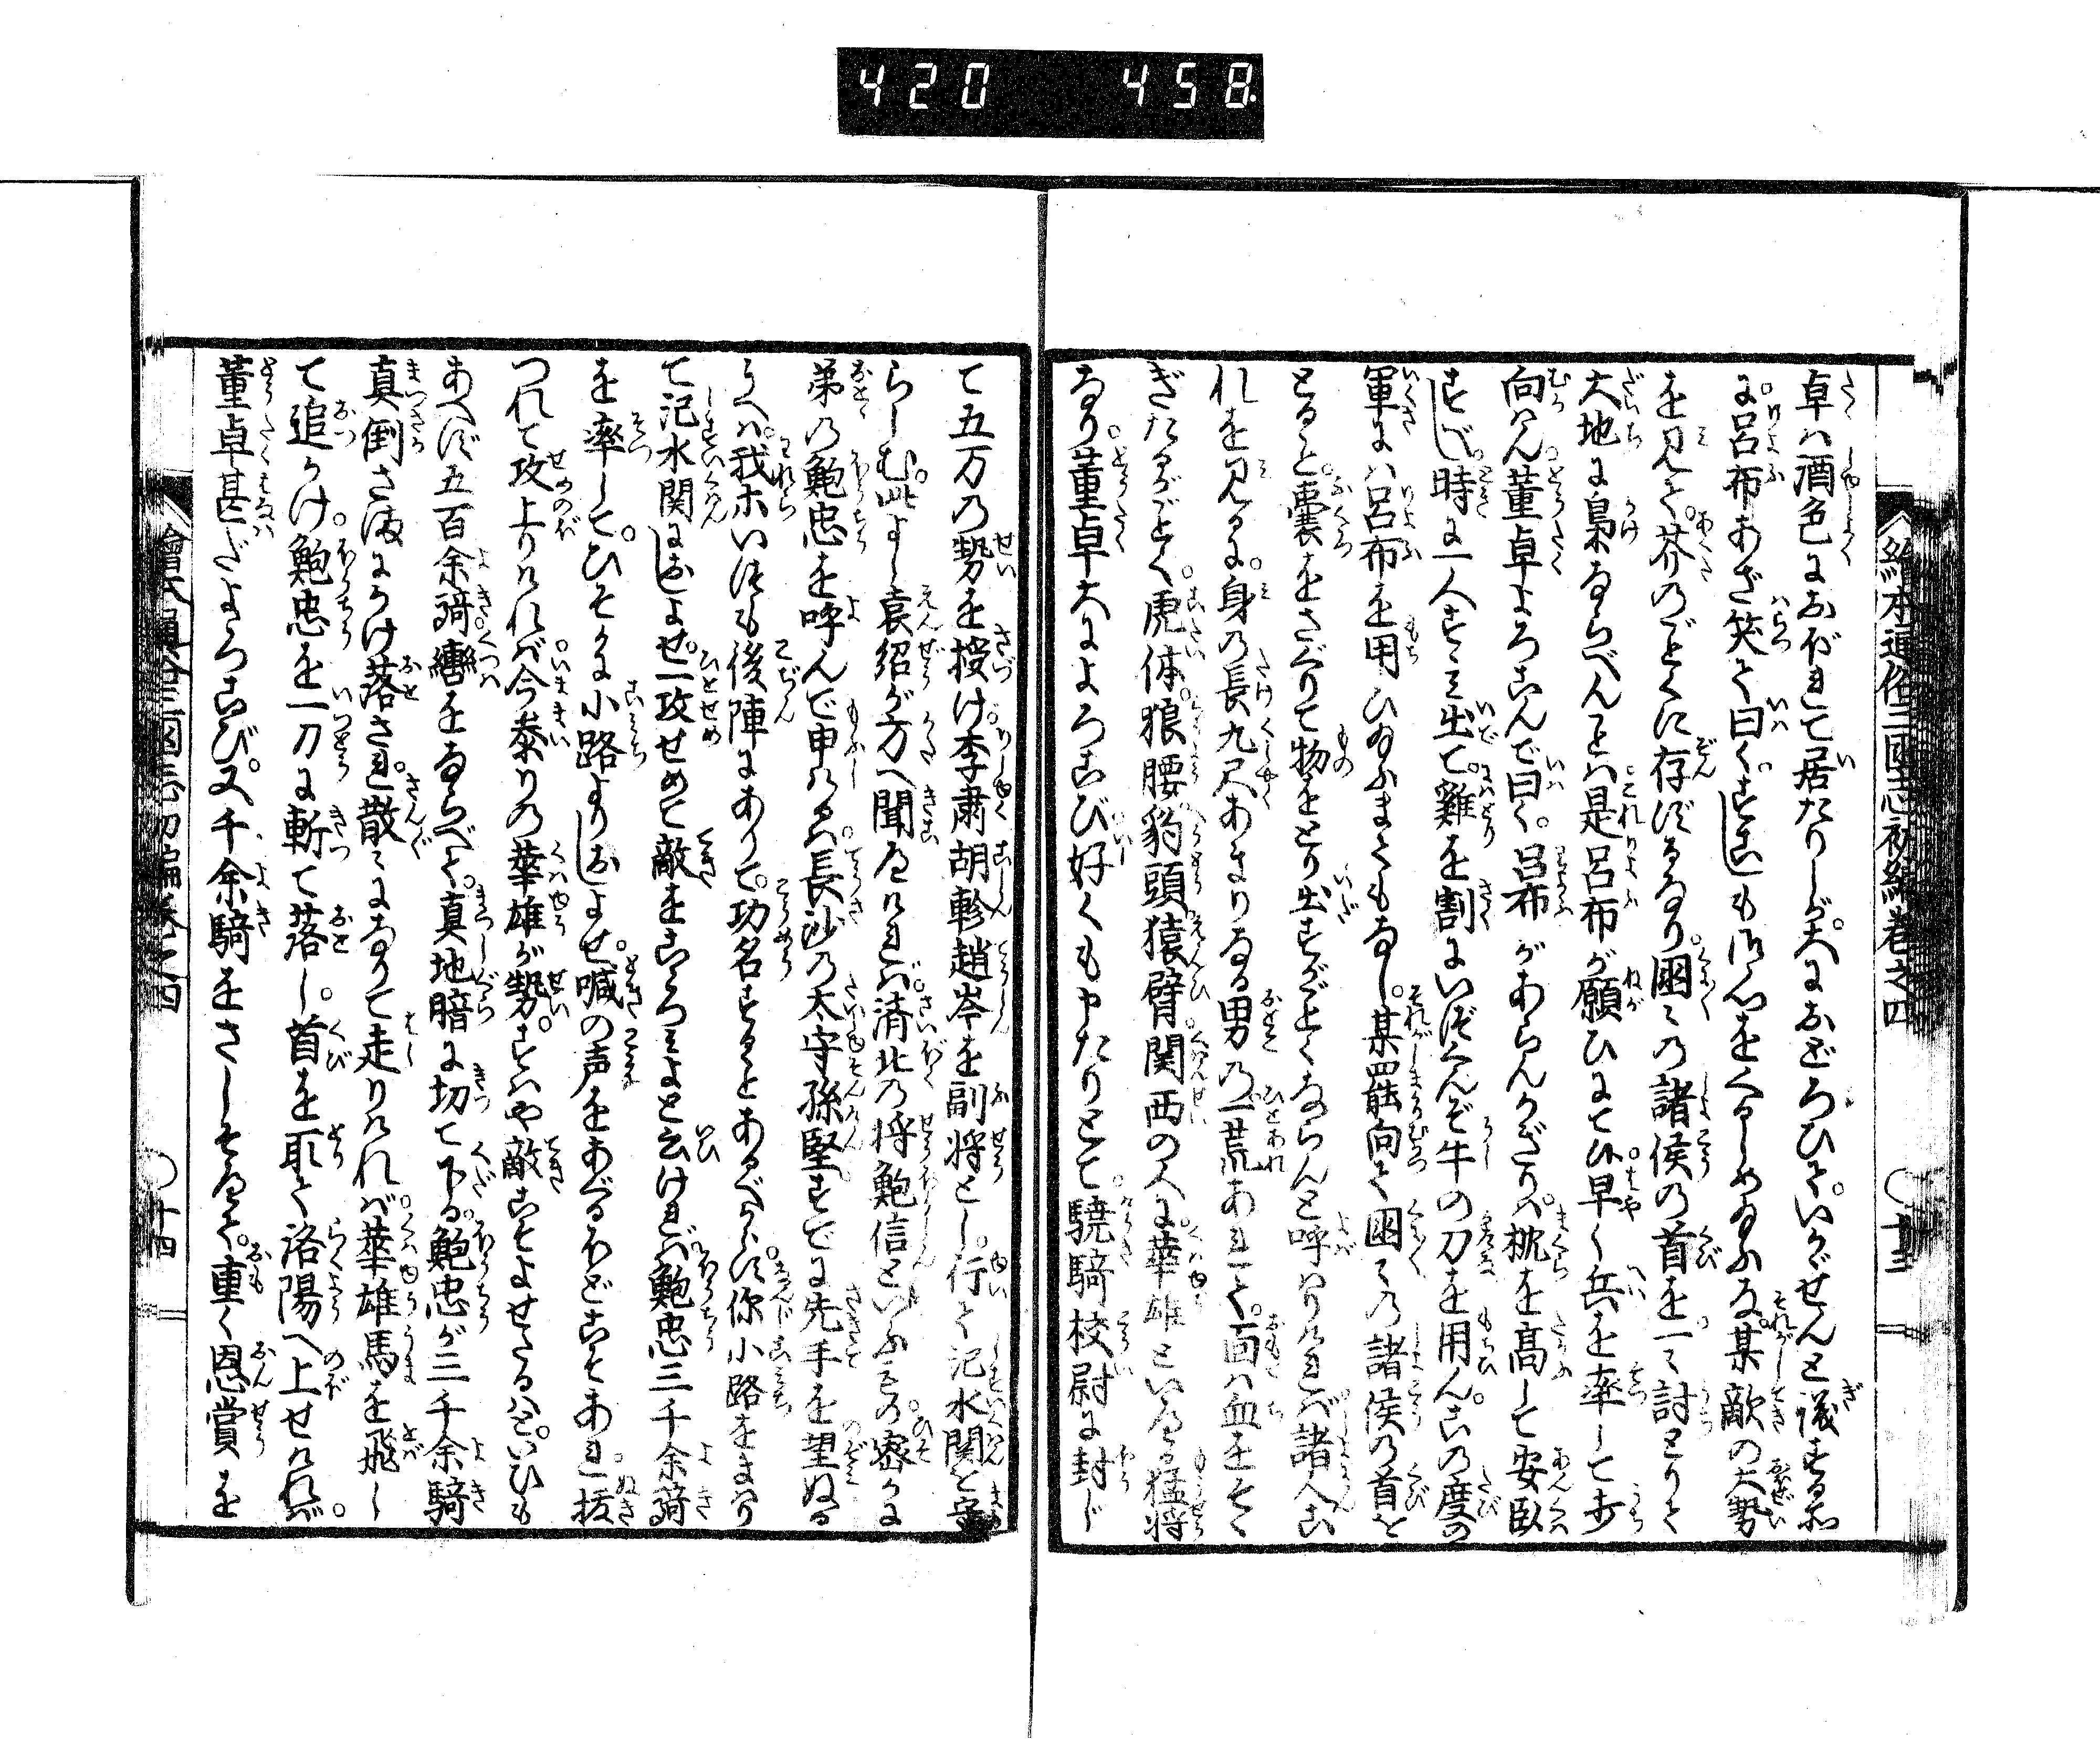 420 458
絵本通俗三国志初編巻之四 十三
卓ハ酒色におぼれて居たりしが大におどろひていかゞせんと議する所
に呂布あざ笑て曰くすこしも御心をくるしめ給ふな某敵の大勢
を見て芥のごとくに存ずるなり国々の諸侯の首を一々討とりて
大地に梟ならべんとハ是呂布が願ひにて候早く兵を率して打
向ん董卓よろこんで曰く呂布があらんかぎりハ枕を高して安臥
すべし時に一人すゝミ出て鶏を割にいづくんぞ牛の刀を用んこの度の
軍にハ呂布を用ひ給ふまでもなし某罷向て国々の諸侯の首を
とると嚢をさぐりて物をとり出すがごとくならんと呼ハりければ諸人こ
れを見るに身の長九尺あまりなる男の一荒あれて面ハ血をそゝ
ぎたるがごとく虎体狼腰豹頭猿臂関西の人に華雄といへる猛将
なり董卓大によろこび好くも申たりとて驍騎校尉に封じ
て五万の勢を授け李粛胡軫趙岑を副将とし行て汜水関を守
らしむ此よし袁紹が方へ聞へければ済北の将鮑信といふもの密かに
弟の鮑忠を呼んで申けるハ長沙の太守孫堅すでに先手を望ぬる
うへハ我ホいつも後陣にありて功名することあるべからず你小路をまハり
て汜水関におしよせ一攻せめて敵をこゝろミよと云ければ鮑忠三千余騎
を率してひそかに小路よりおしよせ喊の声をあぐるほどこそあれ抜
つれて攻上りければ今参りの華雄が勢すハや敵こそよせたるハといひも
あへず五百余騎轡をならべて真地暗に切て下る鮑忠が三千余騎
真倒さまにかけ落され散々になりて走りければ華雄馬を飛し
て追かけ鮑忠を一刀に斬て落し首を取て洛陽へ上せければ
董卓甚だよろこび又千余騎をさしそへて重く恩賞を
絵本通俗三国志初編巻之四 十四